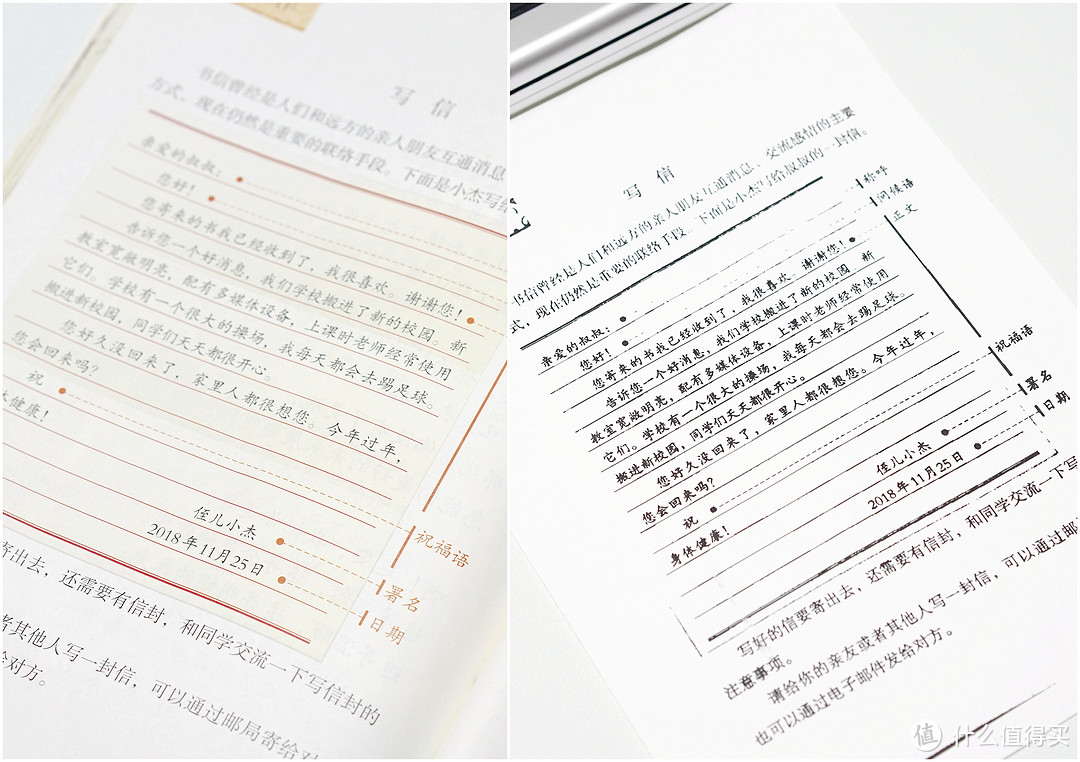 写 信
书信曾经是人们和远方的亲人朋友互通消息
方式，现在仍然是重要的联络手段。下面是小杰写给
亲爱的叔叔：
您好！
您寄来的书我已经收到了，我很喜欢。谢谢您！
告诉您一个好消息，我们学校搬进了新的校园。新
教室宽敞明亮，配有多媒体设备，上课时老师经常使用
它们。学校有一个很大的操场，我每天都会去踢足球。
搬进新校园，同学们天天都很开心。
您好久没回来了，家里人都很想您。今年过年，
您会回来吗？
祝
健康！
侄儿小杰
2018年11月25日
祝福语
署名
日期
寄出去，还需要有信封，和同学交流一下写信封的
者其他人写一封信，可以通过邮局寄给对
对方。
写 信
书信曾经是人们和远方的亲人朋友互通消息、交流感情的主要
式，现在仍然是重要的联络手段。下面是小杰写给叔叔的一封信。
亲爱的叔叔：
称呼
您好！
问候语
您寄来的书我已经收到了，我很喜欢。谢谢您！
正文
告诉您一个好消息，我们学校搬进了新的校园。新
教室宽敞明亮，配有多媒体设备，上课时老师经常使用
它们。学校有一个很大的操场，我每天都会去踢足球。
搬进新校园，同学们天天都很开心。
您好久没回来了，家里人都很想您。今年过年，
您会回来吗？
祝
祝福语
身体健康！
侄儿小杰
署名
2018年11月25日
日期
写好的信要寄出去，还需要有信封，和同学交流一下写
注意事项。
请给你的亲友或者其他人写一封信，可以通过邮
也可以通过电子邮件发给对方。
值 什么值得买